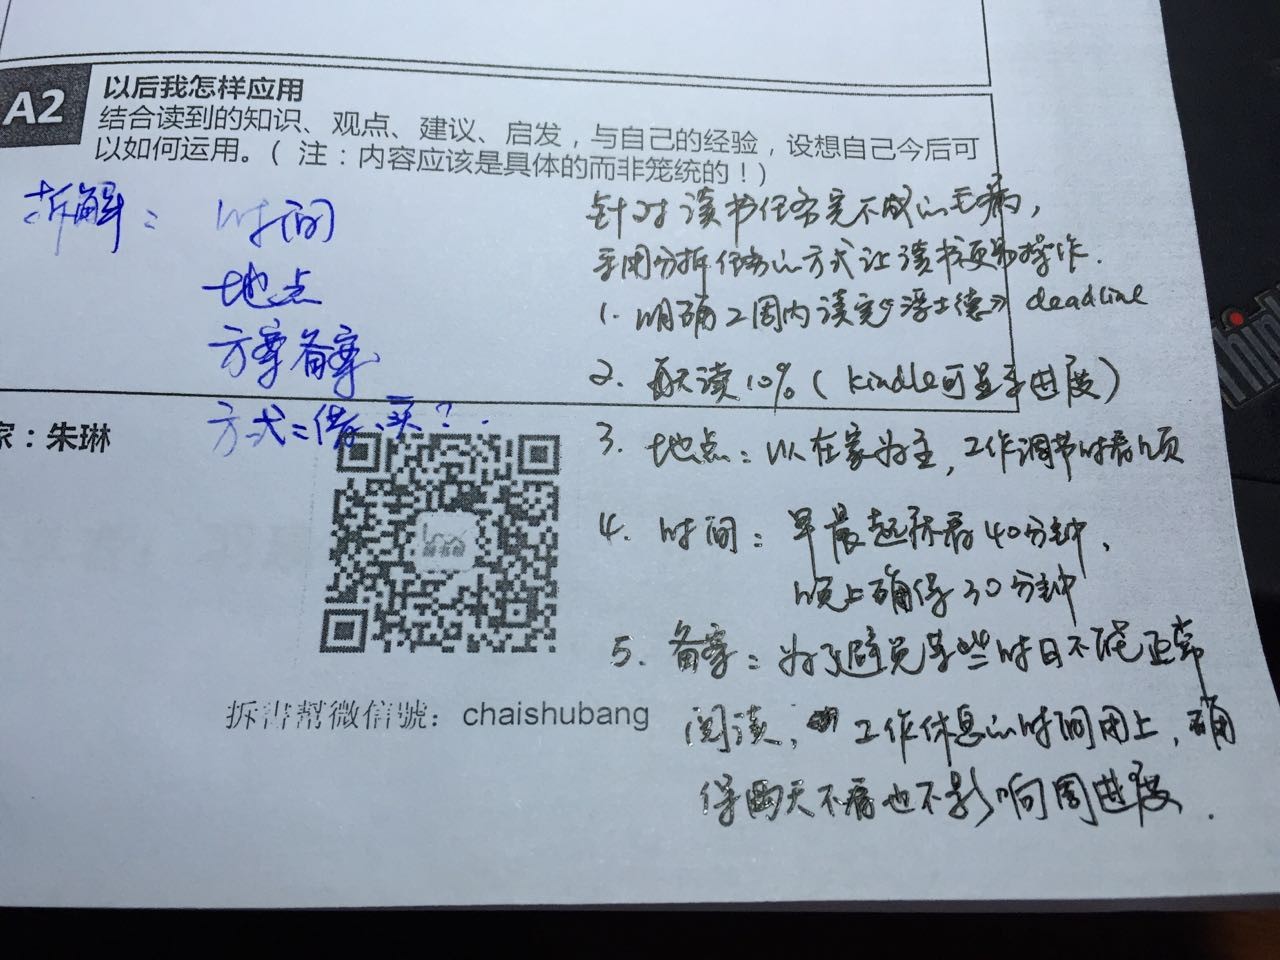 A2
以后我怎样应用
结合读到的知识、观点、建议、启发，与自己的经验，设想自己今后可
以如何运用。（ 注：内容应该是具体的而非笼统的！）
拆解：
时间
地点
方案备案
方式：借、买？
家：朱琳
拆書幫微信號：chaishubang
针对读书任务完不成的毛病，
采用分拆任务的方式让读书更易操作.
1. 明确2周内读完《浮士德》 deadline
2. 每天读10%（kindle可显示进度）
3. 地点：以在家为主，工作调节时看几页
4. 时间：早晨起标看40分钟，
晚上确保30分钟
5. 备案：为了避免某些时日不能正常
阅读，工作休息的时间用上，确
保两天不看也不影响周进度.
Thin